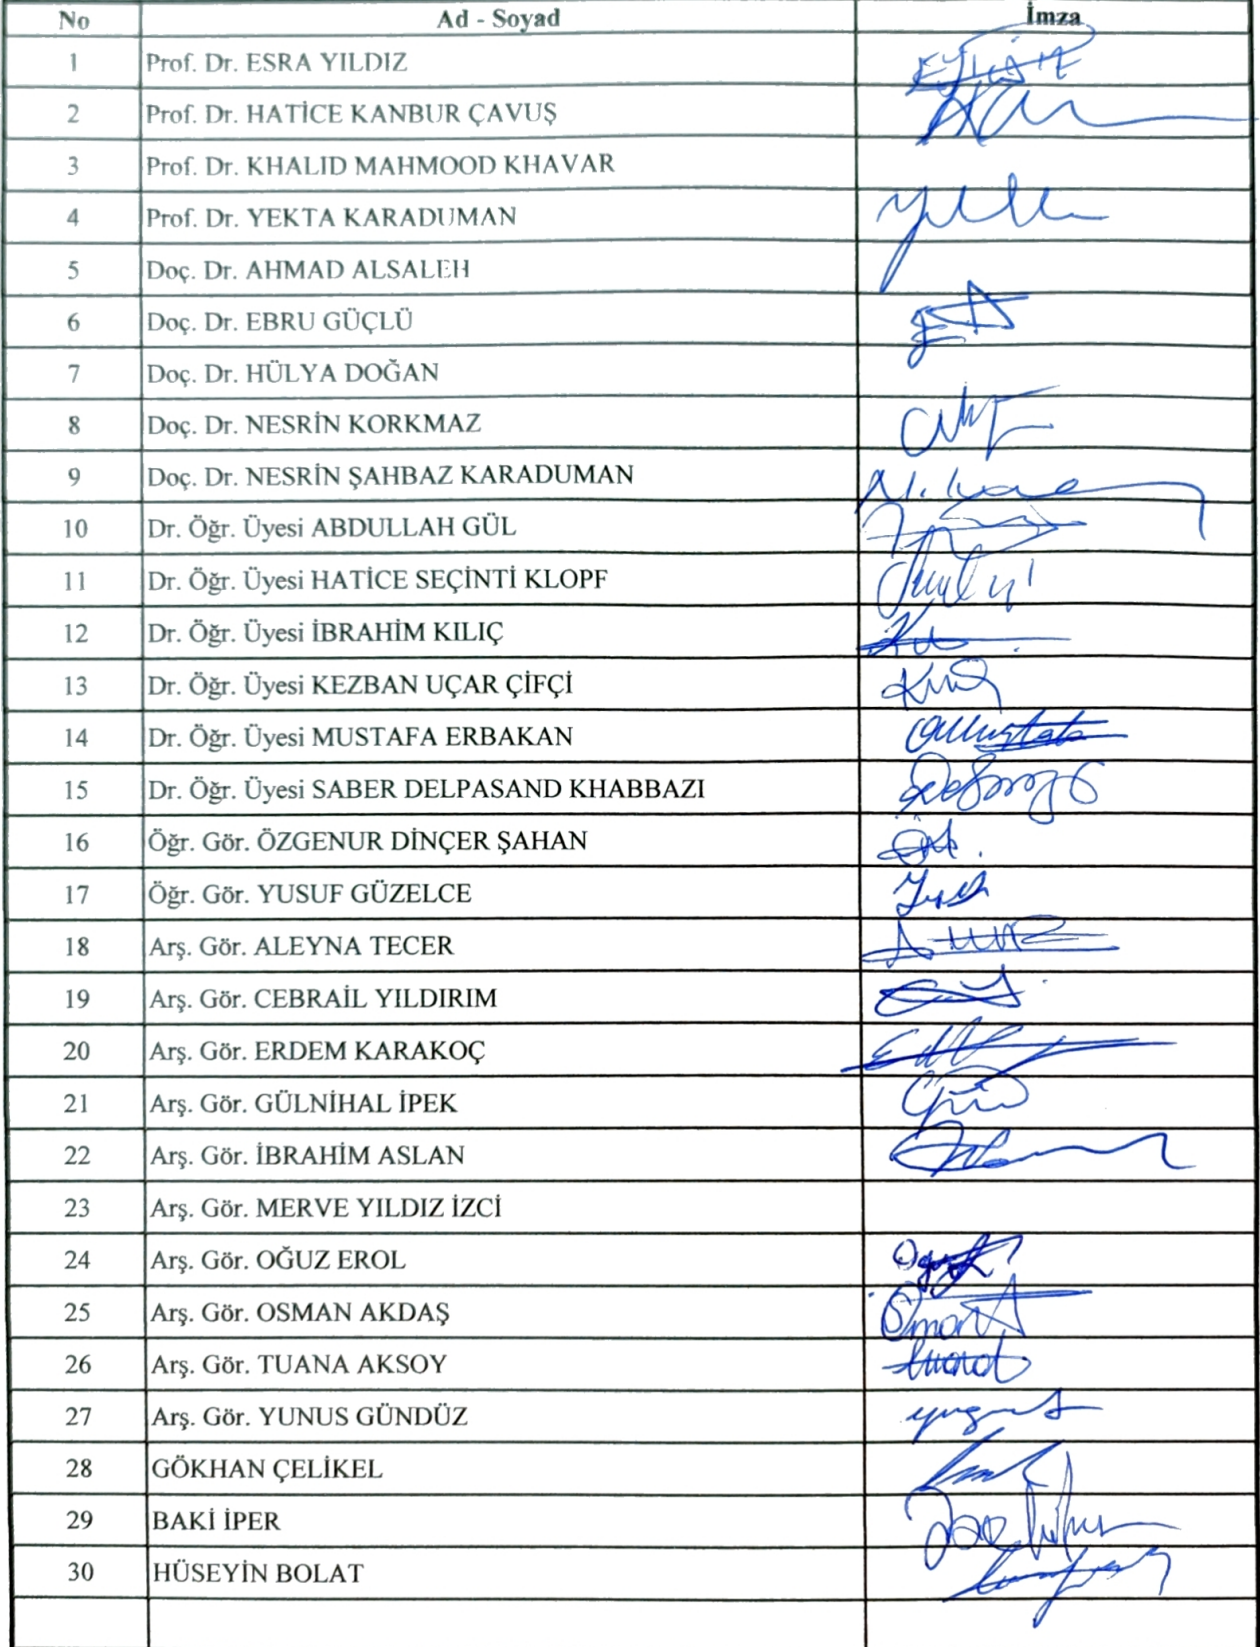 No Ad - Soyad İmza
1 Prof. Dr. ESRA YILDIZ
2 Prof. Dr. HATİCE KANBUR ÇAVUŞ
3 Prof. Dr. KHALID MAHMOOD KHAVAR
4 Prof. Dr. YEKTA KARADUMAN
5 Doç. Dr. AHMAD ALSALEH
6 Doç. Dr. EBRU GÜÇLÜ
7 Doç. Dr. HÜLYA DOĞAN
8 Doç. Dr. NESRİN KORKMAZ
9 Doç. Dr. NESRİN ŞAHBAZ KARADUMAN
10 Dr. Öğr. Üyesi ABDULLAH GÜL
11 Dr. Öğr. Üyesi HATİCE SEÇİNTİ KLOPF
12 Dr. Öğr. Üyesi İBRAHİM KILIÇ
13 Dr. Öğr. Üyesi KEZBAN UÇAR ÇİFÇİ
14 Dr. Öğr. Üyesi MUSTAFA ERBAKAN
15 Dr. Öğr. Üyesi SABER DELPASAND KHABBAZI
16 Öğr. Gör. ÖZGENUR DİNÇER ŞAHAN
17 Öğr. Gör. YUSUF GÜZELCE
18 Arş. Gör. ALEYNA TECER
19 Arş. Gör. CEBRAİL YILDIRIM
20 Arş. Gör. ERDEM KARAKOÇ
21 Arş. Gör. GÜLNİHAL İPEK
22 Arş. Gör. İBRAHİM ASLAN
23 Arş. Gör. MERVE YILDIZ İZCİ
24 Arş. Gör. OĞUZ EROL
25 Arş. Gör. OSMAN AKDAŞ
26 Arş. Gör. TUANA AKSOY
27 Arş. Gör. YUNUS GÜNDÜZ
28 GÖKHAN ÇELİKEL
29 BAKİ İPER
30 HÜSEYİN BOLAT